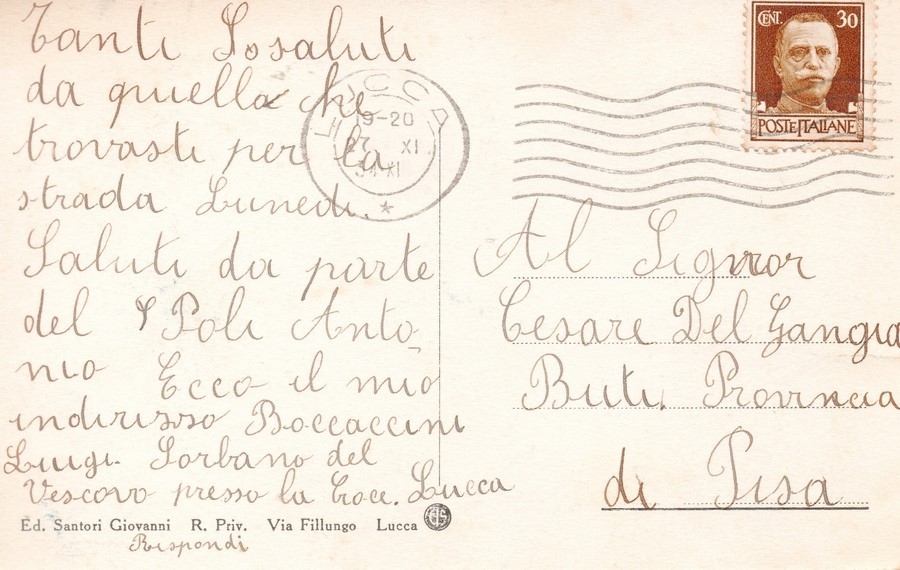 Tanti Sosaluti
da quella che
trovasti per la
strada Lunedi.
Saluti da parte
del S Poli Anto
nio Ecco il mio
indirisso Boccaccini
Luigi. Sorbano del
Vescovo presso la Croce. Lucca
Ed. Santori Giovanni R. Priv. Via Fillungo Lucca
Rispondi
LUCCA
19-20
27 XI
34 XI
CENT. 30
POSTE ITALIANE
Al Signor
Cesare Del Gangia
Buti. Provincia
di Pisa